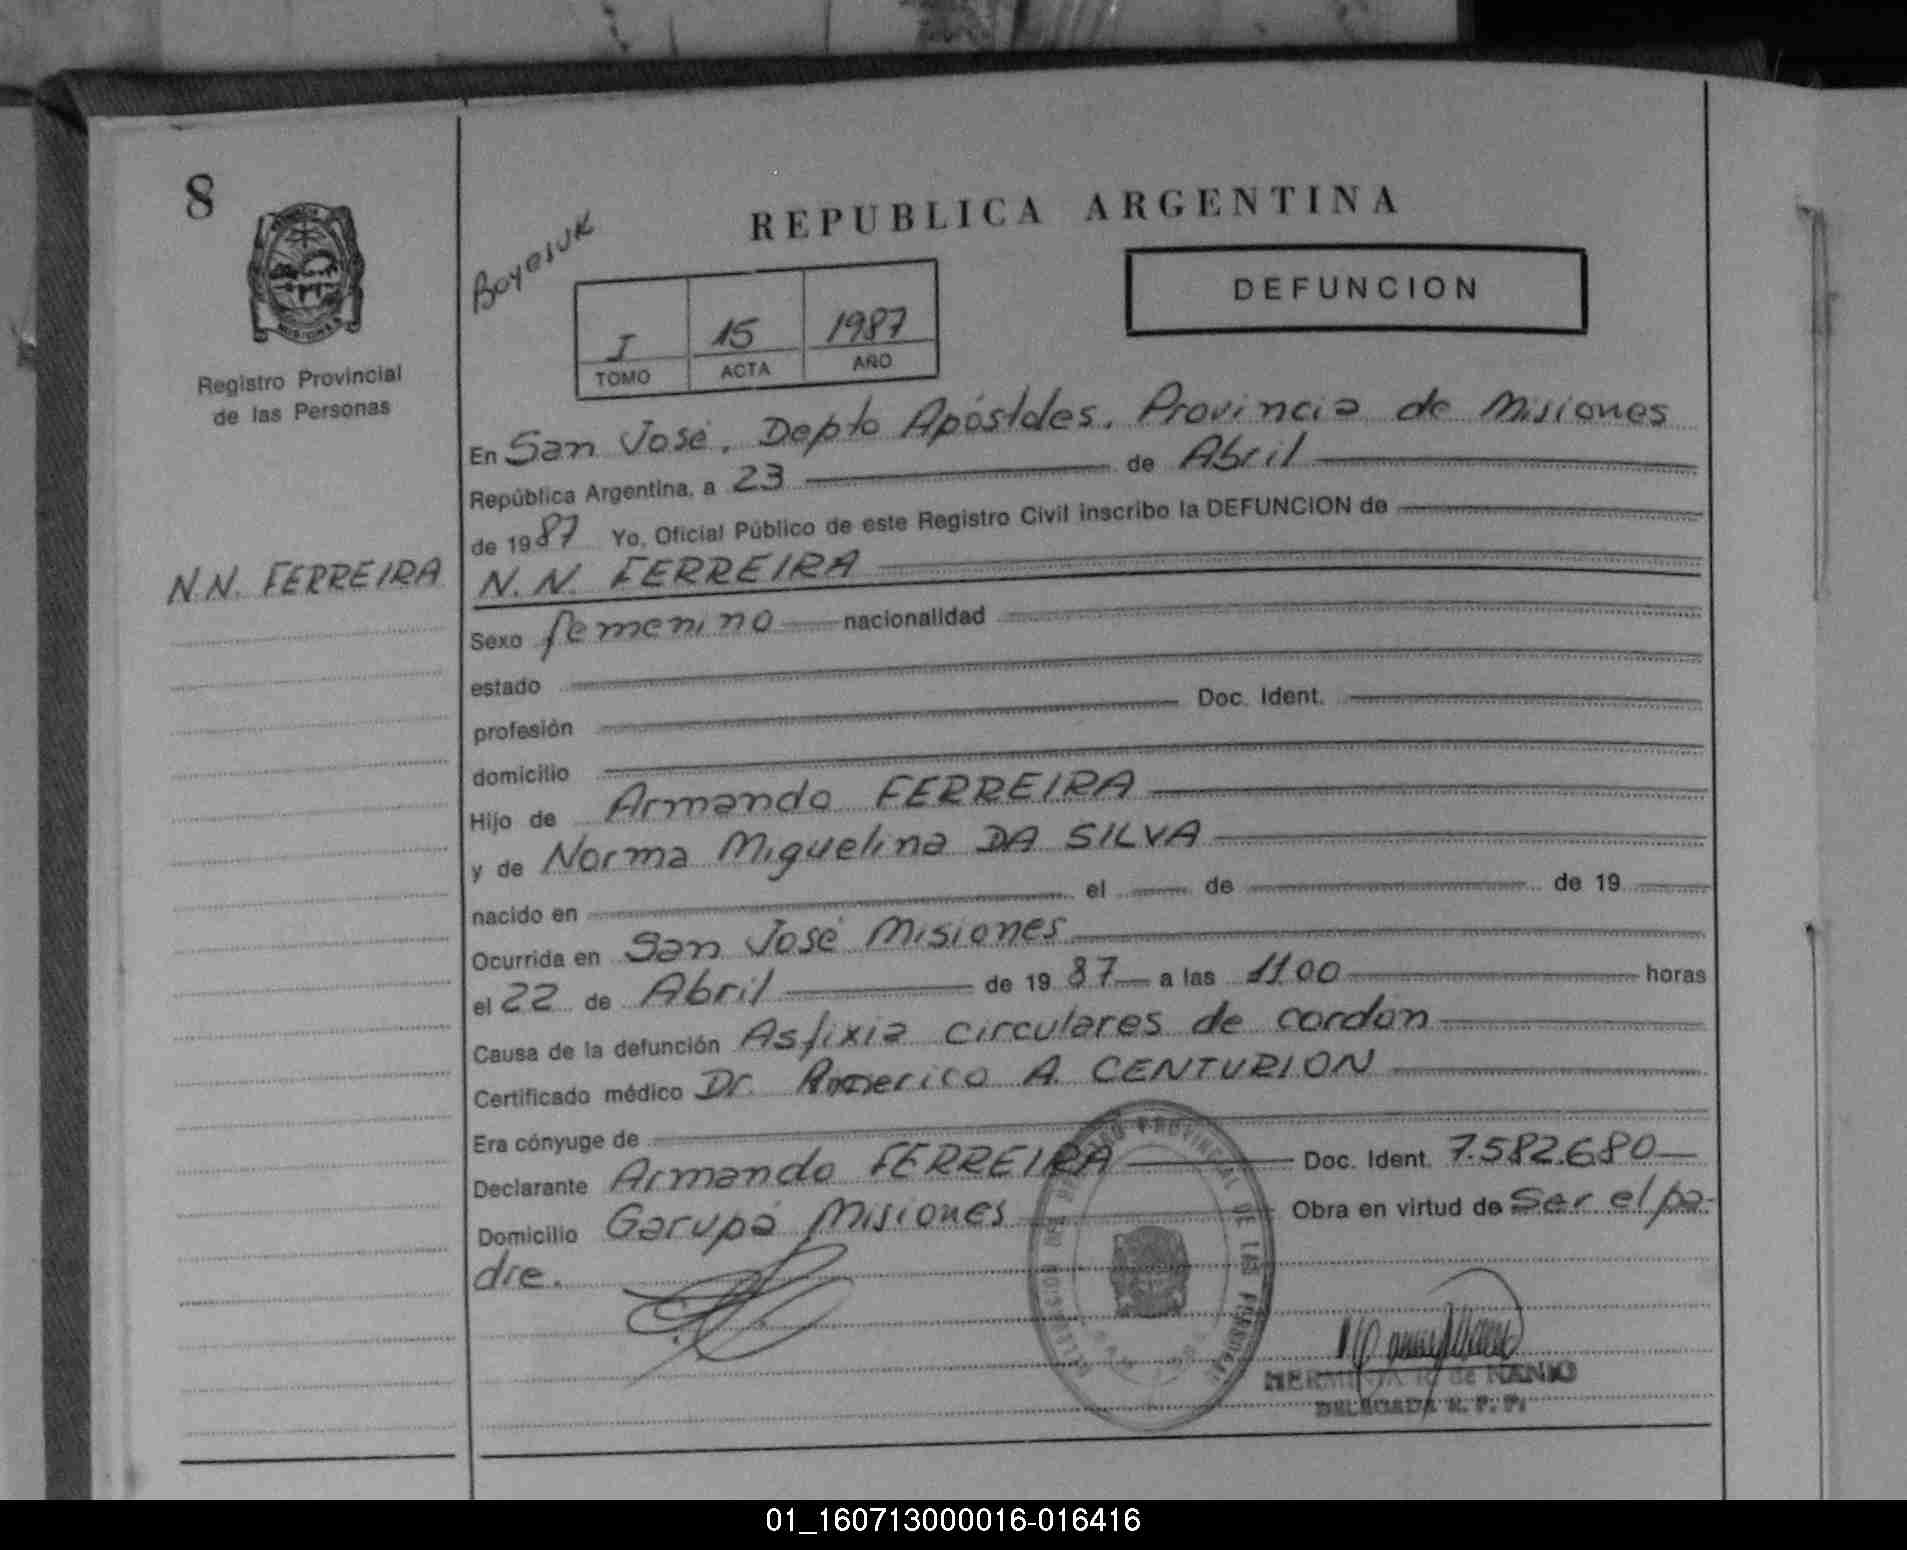 8
Registro Provincial
de las Personas
N.N. FERREIRA
REPUBLICA ARGENTINA
DEFUNCION
I 15 1987
TOMO ACTA AÑO
En San José, Depto Apóstoles, Provincia de Misiones
República Argentina, a 23 de Abril
de 1987 Yo, Oficial Público de este Registro Civil inscribo la DEFUNCION de
N. N. FERREIRA
Sexo femenino nacionalidad
estado
profesión Doc. Ident.
domicilio
Hijo de Armando FERREIRA
y de Norma Miguelina DA SILVA
nacido en el de de 19
Ocurrida en San José Misiones
el 22 de Abril de 1987 a las 11.00 horas
Causa de la defunción Asfixia circulares de cordon
Certificado médico Dr. Americo A. CENTURION
Era cónyuge de
Declarante Armando FERREIRA Doc. Ident. 7.582.680
Domicilio Garupá Misiones Obra en virtud de Ser el pa-
dre.
REGISTRO PROVINCIAL DE LAS PERSONAS
HERMINIA R. de NANIO
DELEGADA R. P. P.
01_160713000016-016416